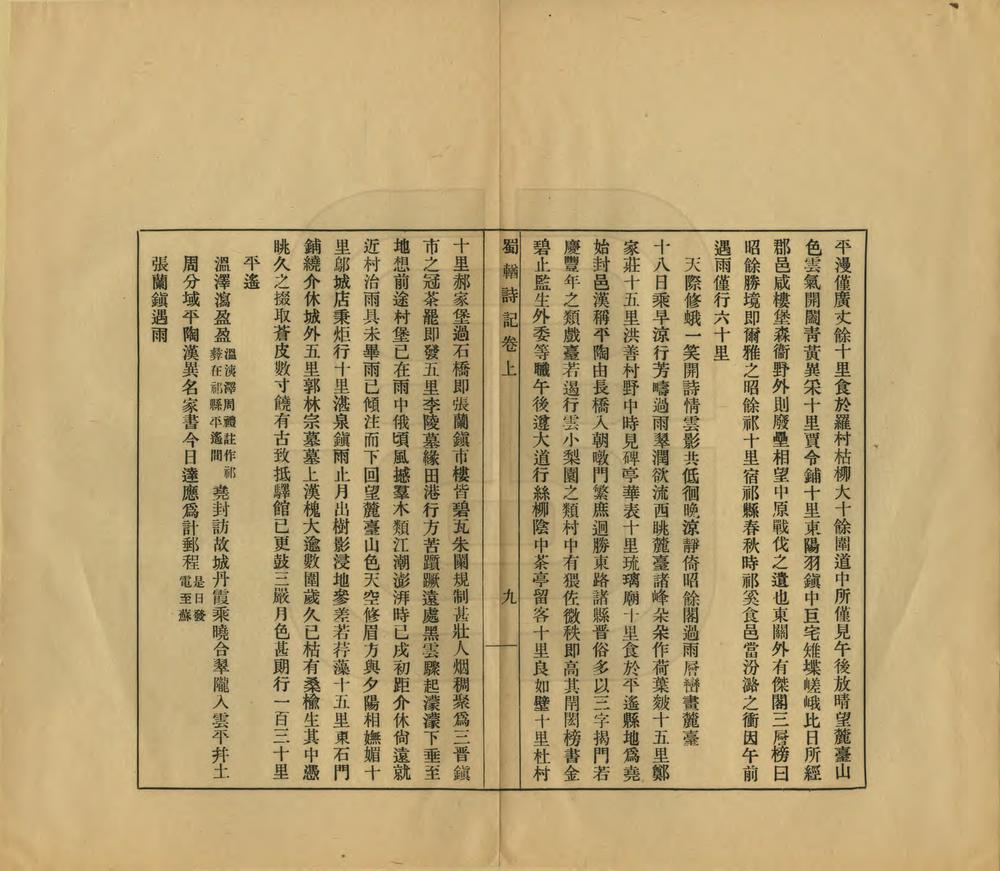 平漫僅廣丈餘十里食於羅村枯柳大十餘圍道中所僅見午後放晴望麓臺山
色雲氣開闔靑黃異采十里賈令鋪十里東陽羽鎭中巨宅雉堞嵯峨比日所經
郡邑咸樓堡森衞野外則廢壘相望中原戰伐之遺也東關外有傑閣三層榜曰
昭餘勝境即爾雅之昭餘祁十里宿祁縣春秋時祁奚食邑當汾潞之衝因午前
遇雨僅行六十里
天際修蛾一笑開詩情雲影共低徊晚涼靜倚昭餘閣過雨層巒畫麓臺
十八日乘早涼行芳疇過雨翠潤欲流西眺麓臺諸峰朵朵作荷葉皴十五里鄭
家莊十五里洪善村野中時見碑亭華表十里琉璃廟十里食於平遙縣地爲堯
始封邑漢稱平陶由長橋入朝暾門繁庶迥勝東路諸縣晋俗多以三字揭門若
慶豐年之類戲臺若遏行雲小梨園之類村中有猥佐微秩即高其閈閎榜書金
碧止監生外委等職午後遵大道行絲柳陰中茶亭留客十里良如壁十里杜村
蜀輶詩記卷上
九
十里郝家堡過石橋即張蘭鎭市樓皆碧瓦朱闌規制甚壯人烟稠聚爲三晋鎭
市之冠茶罷即發五里李陵墓緣田港行方苦躓蹶遠處黑雲驟起濛濛下垂至
地想前途村堡已在雨中俄頃風撼羣木類江潮澎湃時已戌初距介休尙遠就
近村治雨具未畢雨已傾注而下回望麓臺山色天空修眉方與夕陽相嫵媚十
里鄔城店秉炬行十里湛泉鎭雨止月出樹影浸地參差若荇藻十五里東石門
鋪繞介休城外五里郭林宗墓墓上漢槐大逾數圍歲久已枯有桑楡生其中憑
眺久之掇取蒼皮數寸饒有古致抵驛館已更鼓三嚴月色甚朗行一百三十里
平遙
溫澤瀉盈盈溫洟澤周禮註作祁藪在祁縣平遙間堯封訪故城丹霞乘曉合翠隴入雲平幷土
周分域平陶漢異名家書今日達應爲計郵程是日發電至蘇
張蘭鎭遇雨